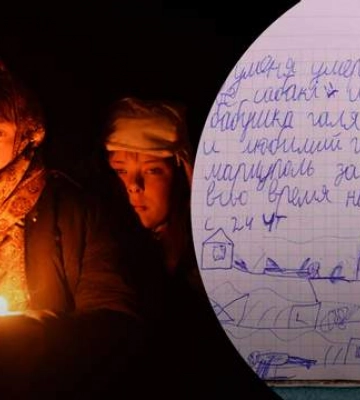 у меня умер
сабаки и
бабушка галя
и любимий г
мариуполь за
всю время
с 24 чт